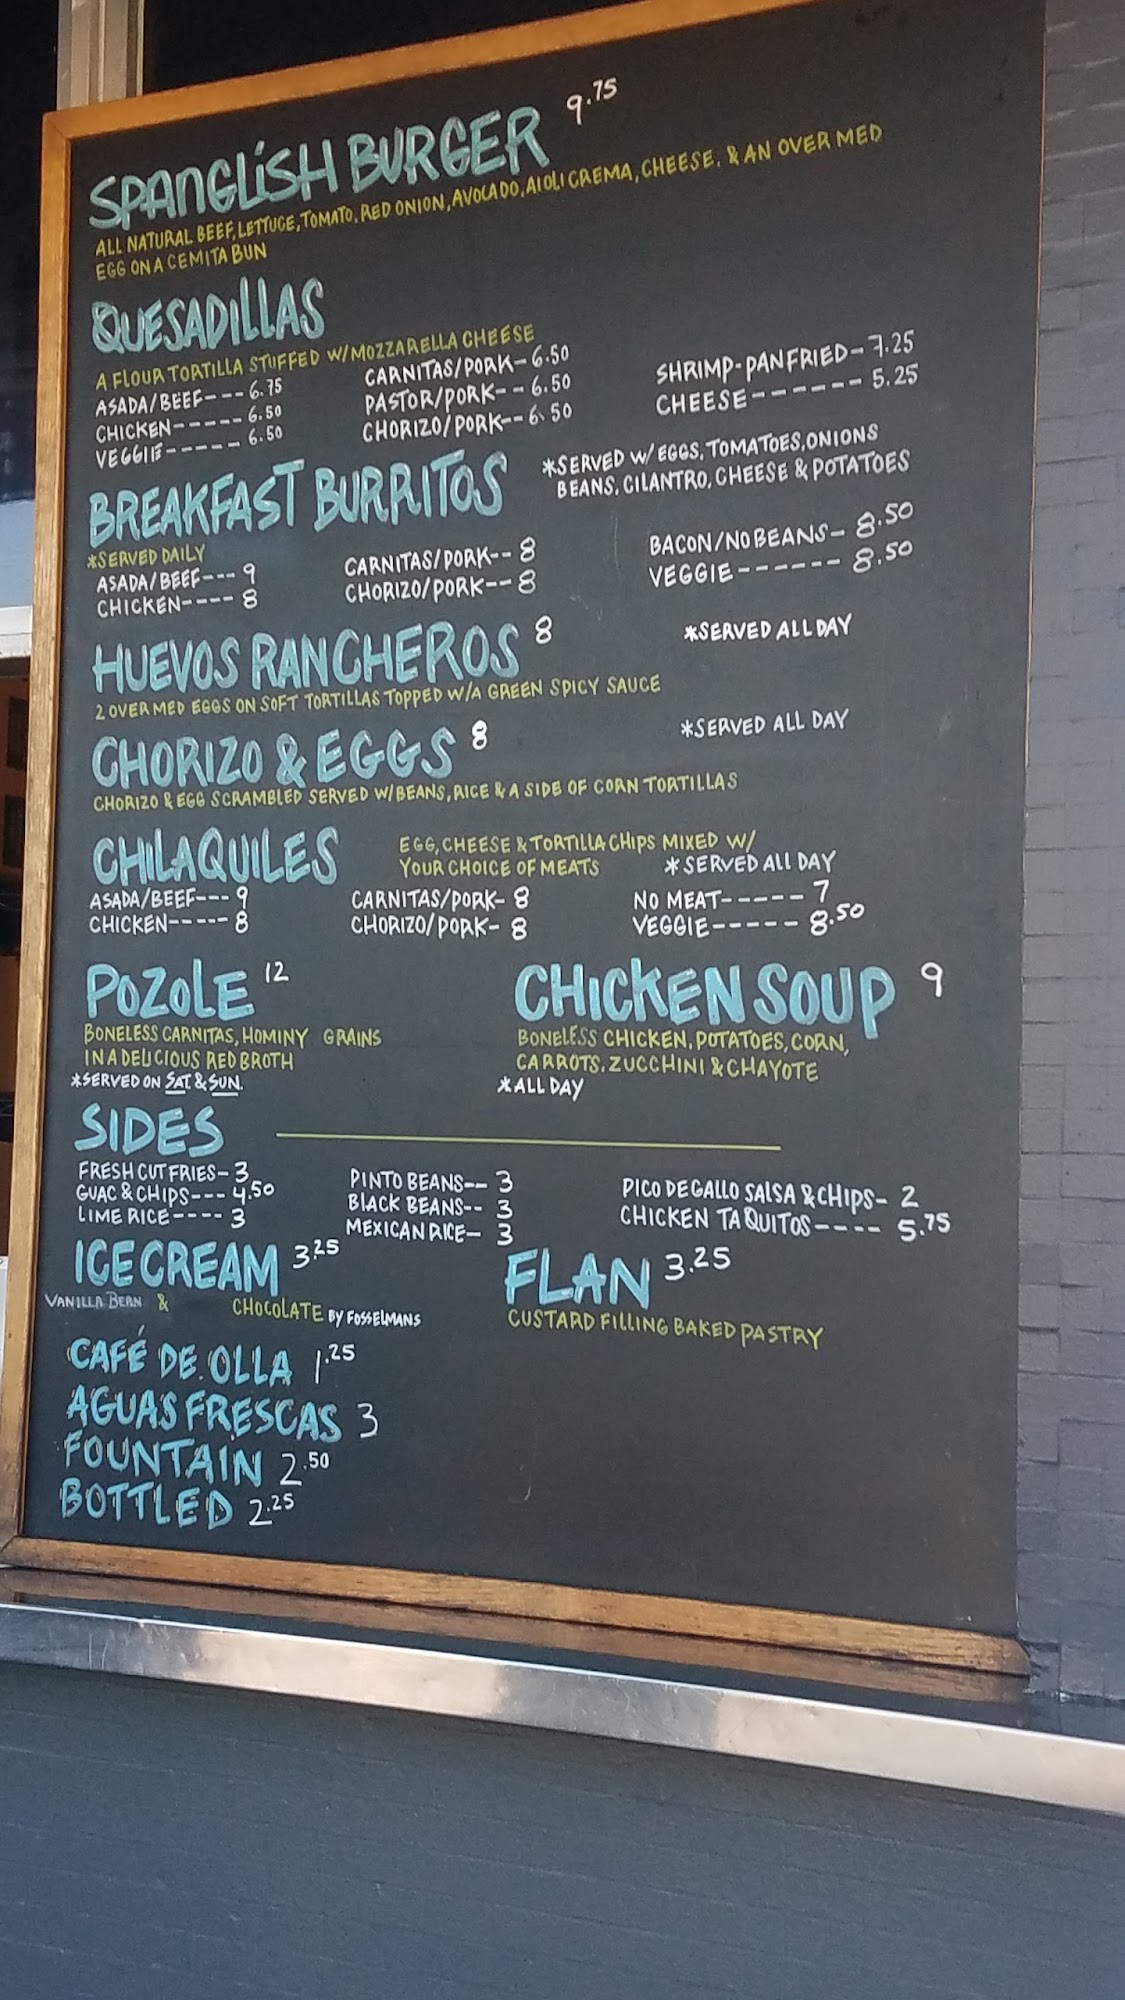 SPANGLISH BURGER 9.75
ALL NATURAL BEEF, LETTUCE, TOMATO, RED ONION, AVOCADO, AIOLI CREMA, CHEESE. & AN OVER MED
EGG ON A CEMITA BUN
QUESADILLAS
A FLOUR TORTILLA STUFFED W/MOZZARELLA CHEESE
ASADA/BEEF--- 6.75 CARNITAS/PORK- 6.50 SHRIMP-PAN FRIED- 7.25
CHICKEN----- 6.50 PASTOR/PORK-- 6.50 CHEESE------ 5.25
VEGGIE----- 6.50 CHORIZO/PORK-- 6.50
BREAKFAST BURRITOS *SERVED W/ EGGS, TOMATOES, ONIONS
BEANS, CILANTRO, CHEESE & POTATOES
*SERVED DAILY
ASADA/BEEF--- 9 CARNITAS/PORK-- 8 BACON/NO BEANS- 8.50
CHICKEN---- 8 CHORIZO/PORK-- 8 VEGGIE------ 8.50
HUEVOS RANCHEROS 8 *SERVED ALL DAY
2 OVER MED EGGS ON SOFT TORTILLAS TOPPED W/A GREEN SPICY SAUCE
CHORIZO & EGGS 8 *SERVED ALL DAY
CHORIZO & EGG SCRAMBLED SERVED W/BEANS, RICE & A SIDE OF CORN TORTILLAS
CHILAQUILES EGG, CHEESE & TORTILLA CHIPS MIXED W/
YOUR CHOICE OF MEATS *SERVED ALL DAY
ASADA/BEEF--- 9 CARNITAS/PORK- 8 NO MEAT----- 7
CHICKEN----- 8 CHORIZO/PORK- 8 VEGGIE----- 8.50
POZOLE 12
BONELESS CARNITAS, HOMINY GRAINS
IN A DELICIOUS RED BROTH
*SERVED ON SAT & SUN.
CHICKEN SOUP 9
BONELESS CHICKEN, POTATOES, CORN,
CARROTS, ZUCCHINI & CHAYOTE
*ALL DAY
SIDES
FRESH CUT FRIES- 3 PINTO BEANS-- 3 PICO DE GALLO SALSA & CHIPS- 2
GUAC & CHIPS--- 4.50 BLACK BEANS-- 3 CHICKEN TAQUITOS---- 5.75
LIME RICE---- 3 MEXICAN RICE- 3
ICE CREAM 3.25
VANILLA BEAN & CHOCOLATE BY FOSSELMANS
FLAN 3.25
CUSTARD FILLING BAKED PASTRY
CAFÉ DE OLLA 1.25
AGUAS FRESCAS 3
FOUNTAIN 2.50
BOTTLED 2.25